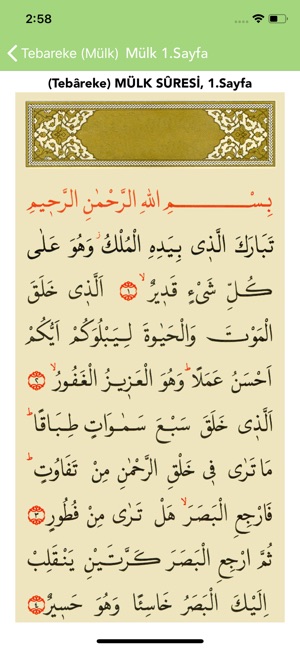 2:58
Tebareke (Mülk) Mülk 1.Sayfa
(Tebâreke) MÜLK SÛRESİ, 1.Sayfa
بِسْمِ اللهِ الرَّحْمٰنِ الرَّحٖيمِ
تَبَارَكَ الَّذٖى بِيَدِهِ الْمُلْكُؗ وَهُوَ عَلٰى
كُلِّ شَیْءٍ قَدٖيرٌۙ ١ اَلَّذٖى خَلَقَ
الْمَوْتَ وَالْحَيٰوةَ لِيَبْلُوَكُمْ اَيُّكُمْ
اَحْسَنُ عَمَلًاؕ وَهُوَ الْعَزٖيزُ الْغَفُورُۙ ٢
اَلَّذٖى خَلَقَ سَبْعَ سَمٰوَاتٍ طِبَاقًاؕ
مَا تَرٰى فٖى خَلْقِ الرَّحْمٰنِ مِنْ تَفَاوُتٍؕ
فَارْجِعِ الْبَصَرَۙ هَلْ تَرٰى مِنْ فُطُورٍ ٣
ثُمَّ ارْجِعِ الْبَصَرَ كَرَّتَيْنِ يَنْقَلِبْ
اِلَيْكَ الْبَصَرُ خَاسِئًا وَهُوَ حَسٖيرٌ ٤